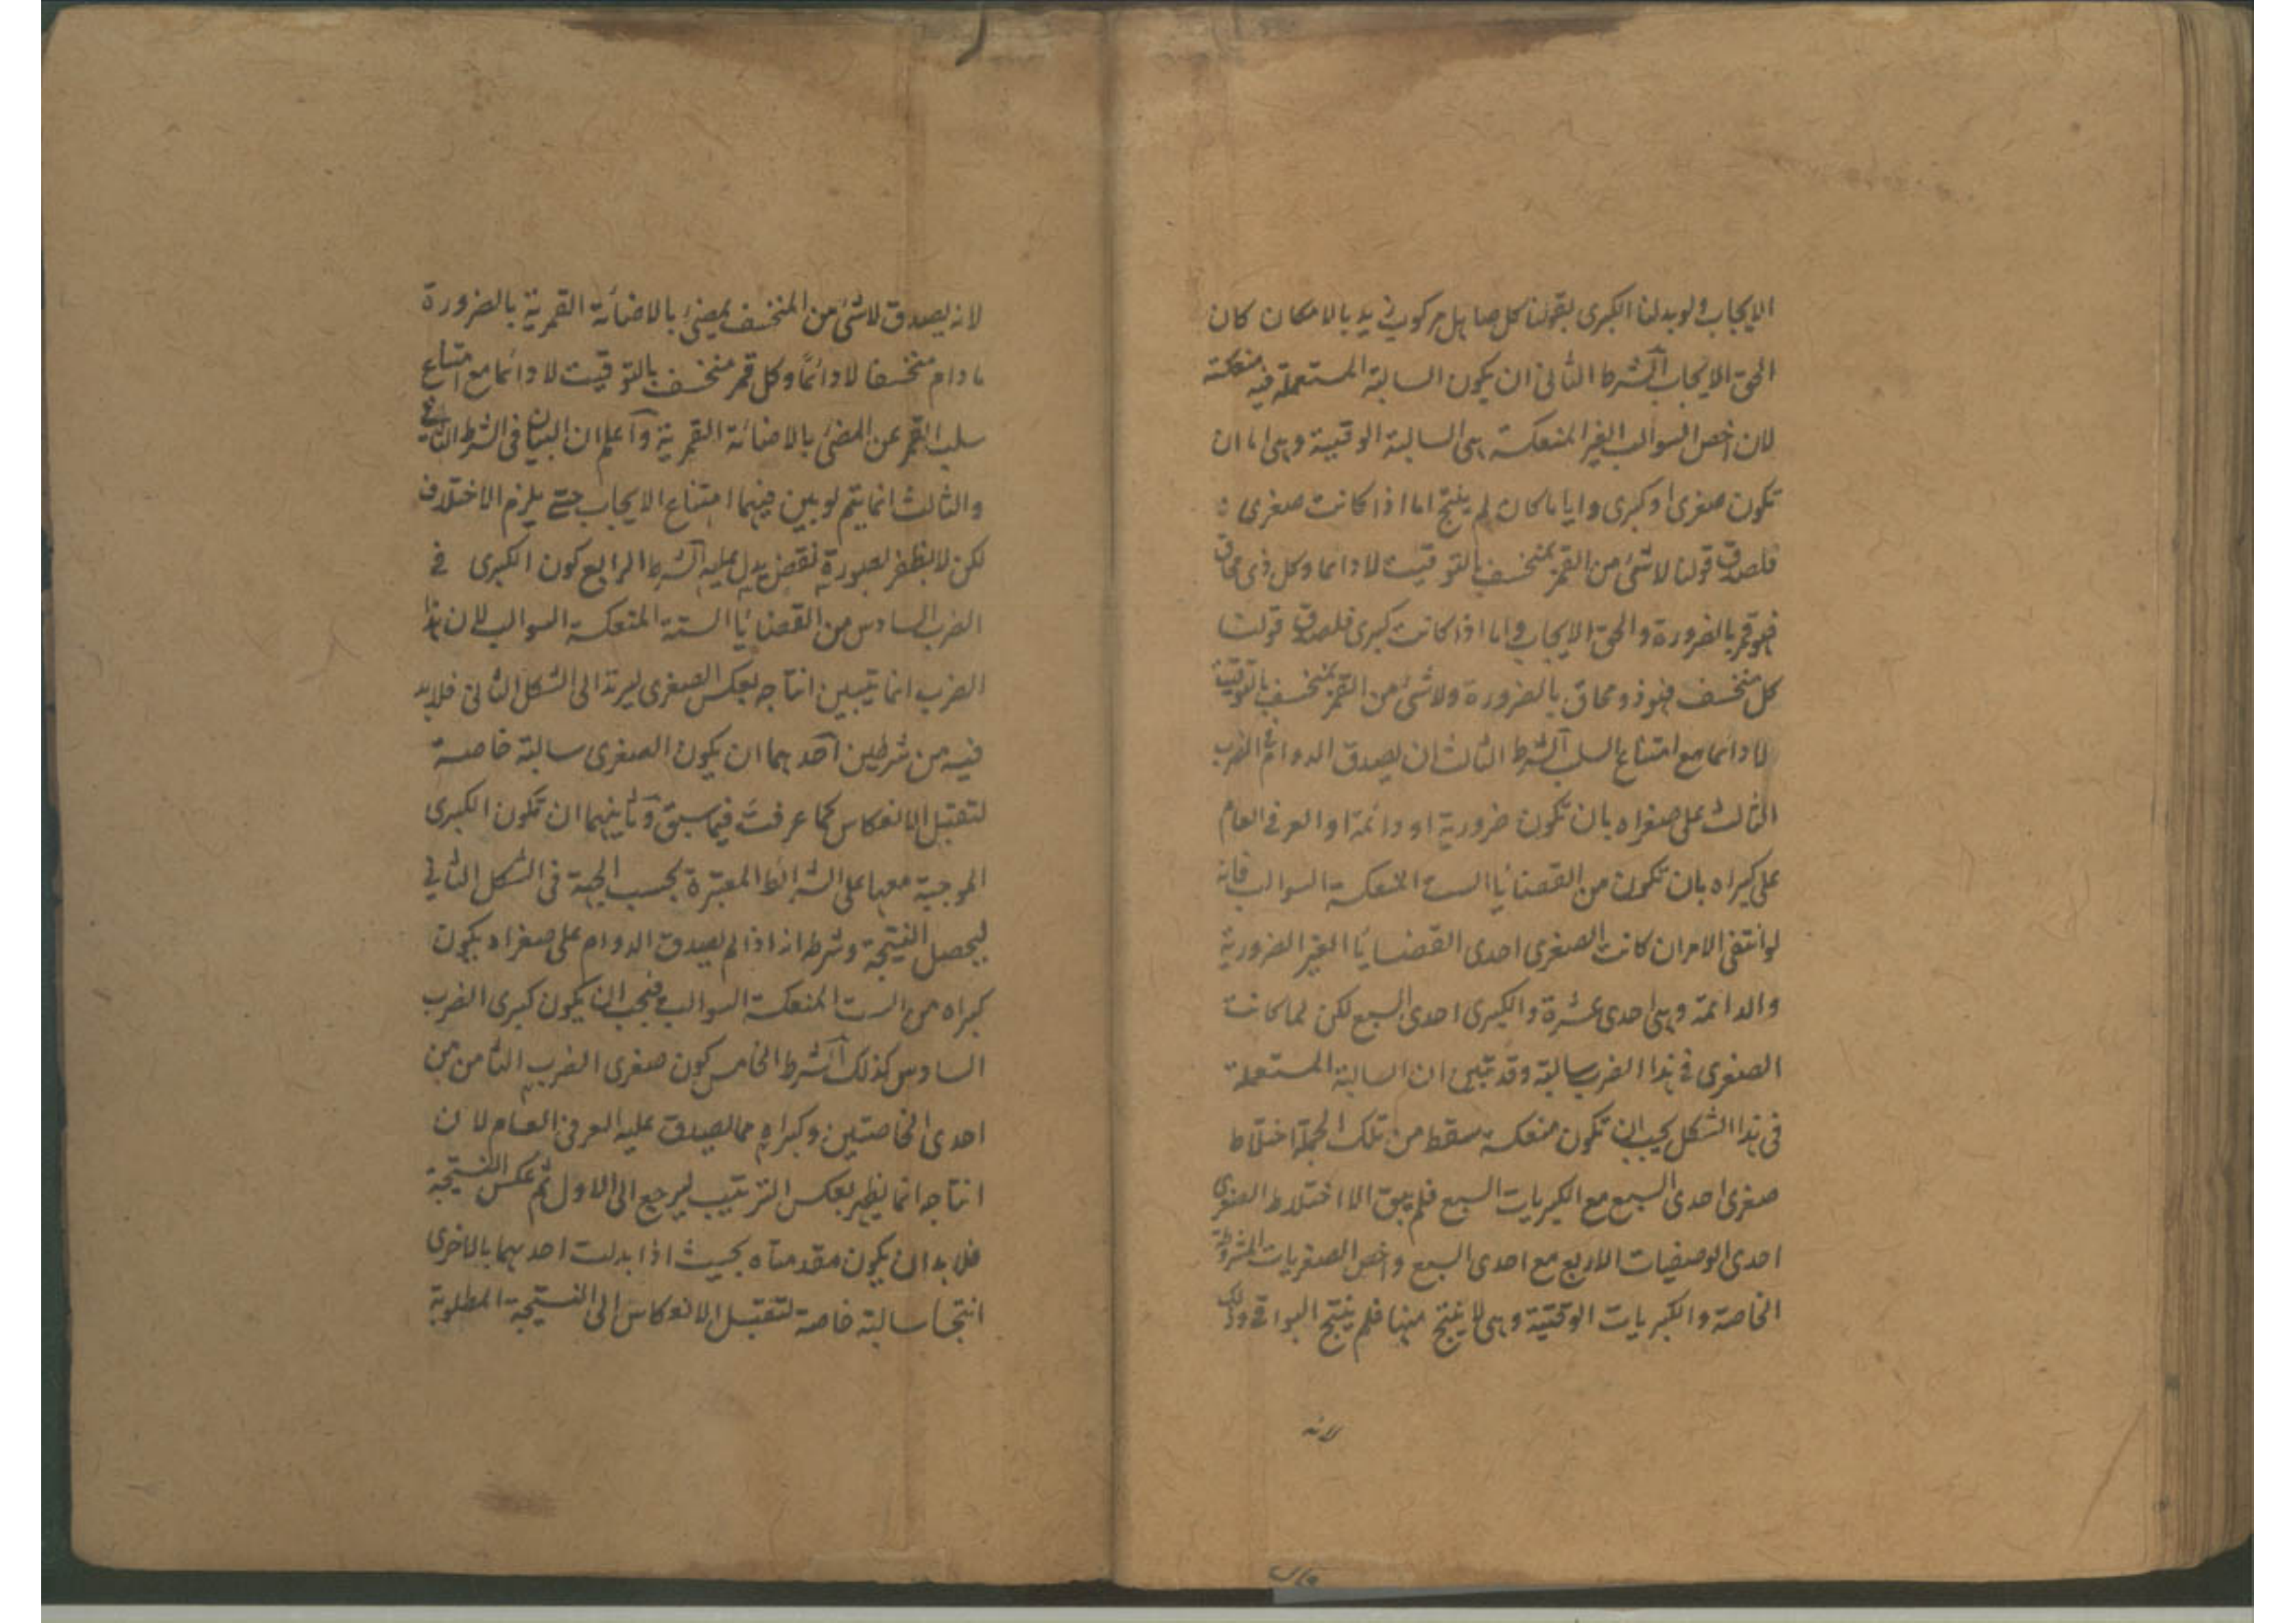 الايجاب ولو بدلنا الكبرى بقولنا كل صاهل مركوب زيد بالامكان كان
الحق الايجاب الشرط الثانى ان يكون السالبة المستعملة فيه منعكسة
لان اخص السوالب الغير المنعكسة هى السالبة الوقتية وهى اما ان
تكون صغرى او كبرى وايا ما كان لم ينتج اما اذا كانت صغرى
فلصدق قولنا لاشئ من القمر بمنخسف بالتوقيت لا دائما وكل ذى محاق
فهو قمر بالضرورة والحق الايجاب واما اذا كانت كبرى فلصدق قولنا
كل منخسف فهو ذو محاق بالضرورة ولاشئ من القمر بمنخسف بالتوقيت
لا دائما مع امتناع السلب الشرط الثالث ان يصدق الدوام فى الضرب
الثالث على صغراه بان تكون ضرورية او دائمة او العرفى العام
على كبراه بان تكون من القضايا الست المنعكسة السوالب فانه
لو انتفى الامران كانت الصغرى احدى القضايا الغير الضرورية
والدائمة وهى احدى عشرة والكبرى احدى السبع لكن لما كانت
الصغرى فى هذا الضرب سالبة وقد تبين ان السالبة المستعملة
فى هذا الشكل يجب ان تكون منعكسة سقط من تلك الجملة اختلاط
صغرى احدى السبع مع الكبريات السبع فلم يبق الا اختلاط الصغرى
احدى الوصفيات الاربع مع احدى السبع واخص الصغريات المشروطة
الخاصة والكبريات الوقتية وهى لا ينتج منها فلم ينتج البواقى وذلك
لانه
لانه يصدق لاشئ من المنخسف بمضئ بالاضائة القمرية بالضرورة
ما دام منخسفا لا دائما وكل قمر منخسف بالتوقيت لا دائما مع امتناع
سلب القمر عن المضئ بالاضائة القمرية واعلم ان البيان فى الشرط الثانى
والثالث انما يتم لو بين فيهما امتناع الايجاب حتى يلزم الاختلاف
لكن لا بظفر بصورة نقض يدل عليه الشرط الرابع كون الكبرى فى
الضرب السادس من القضايا الستة المنعكسة السوالب لان هذا
الضرب انما يتبين انتاجه بعكس الصغرى ليرتد الى الشكل الثانى فلابد
فيه من شرطين احدهما ان يكون الصغرى سالبة خاصة
لتقبل الانعكاس كما عرفت فيما سبق وثانيهما ان تكون الكبرى
الموجبة معها على الشرائط المعتبرة بحسب الجهة فى الشكل الثانى
ليحصل النتيجة وشرطه انه اذا لم يصدق الدوام على صغراه يكون
كبراه من الست المنعكسة السوالب فيجب ان يكون كبرى الضرب
السادس كذلك الشرط الخامس كون صغرى الضرب الثامن من
احدى الخاصتين وكبراه مما يصدق عليه العرفى العام لان
انتاجه انما يظهر بعكس الترتيب ليرجع الى الاول ثم عكس النتيجة
فلابد ان يكون مقدمتاه بحيث اذا بدلت احدهما بالاخرى
انتجا سالبة خاصة لتقبل الانعكاس الى النتيجة المطلوبة